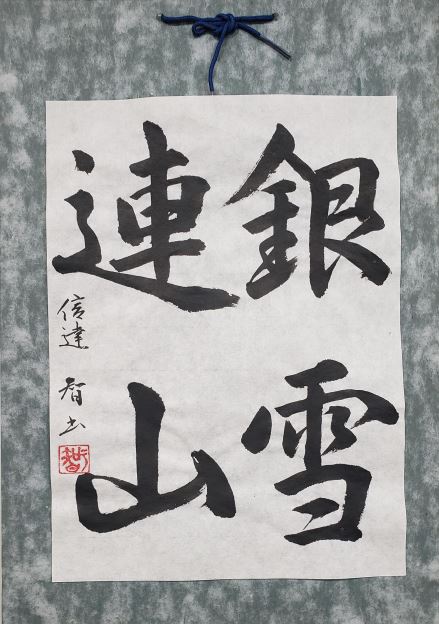 銀雪
連山
信達 智書